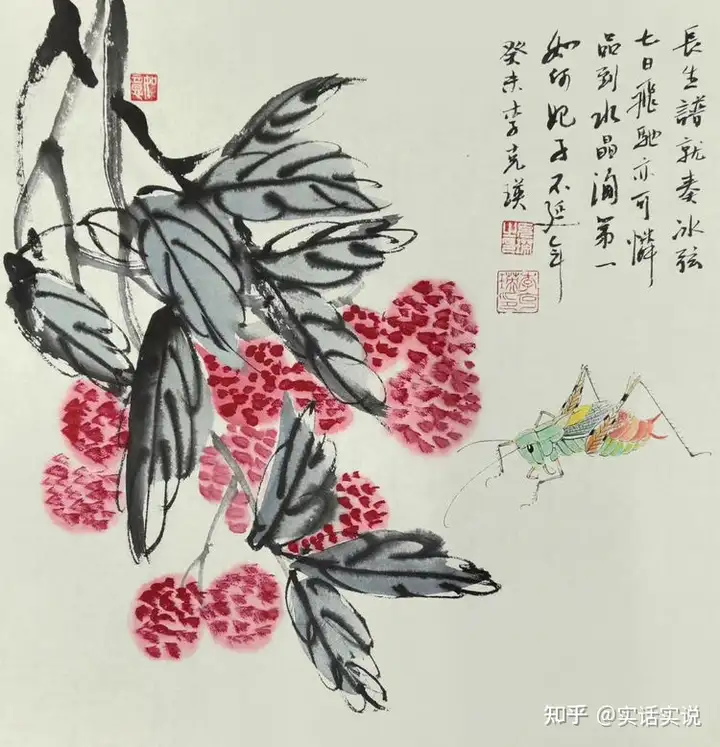 長生譜就奏冰弦
七日飛馳亦可憐
品到水晶第一
如何妃子不延年
癸未李克瑛
知乎 @实话实说